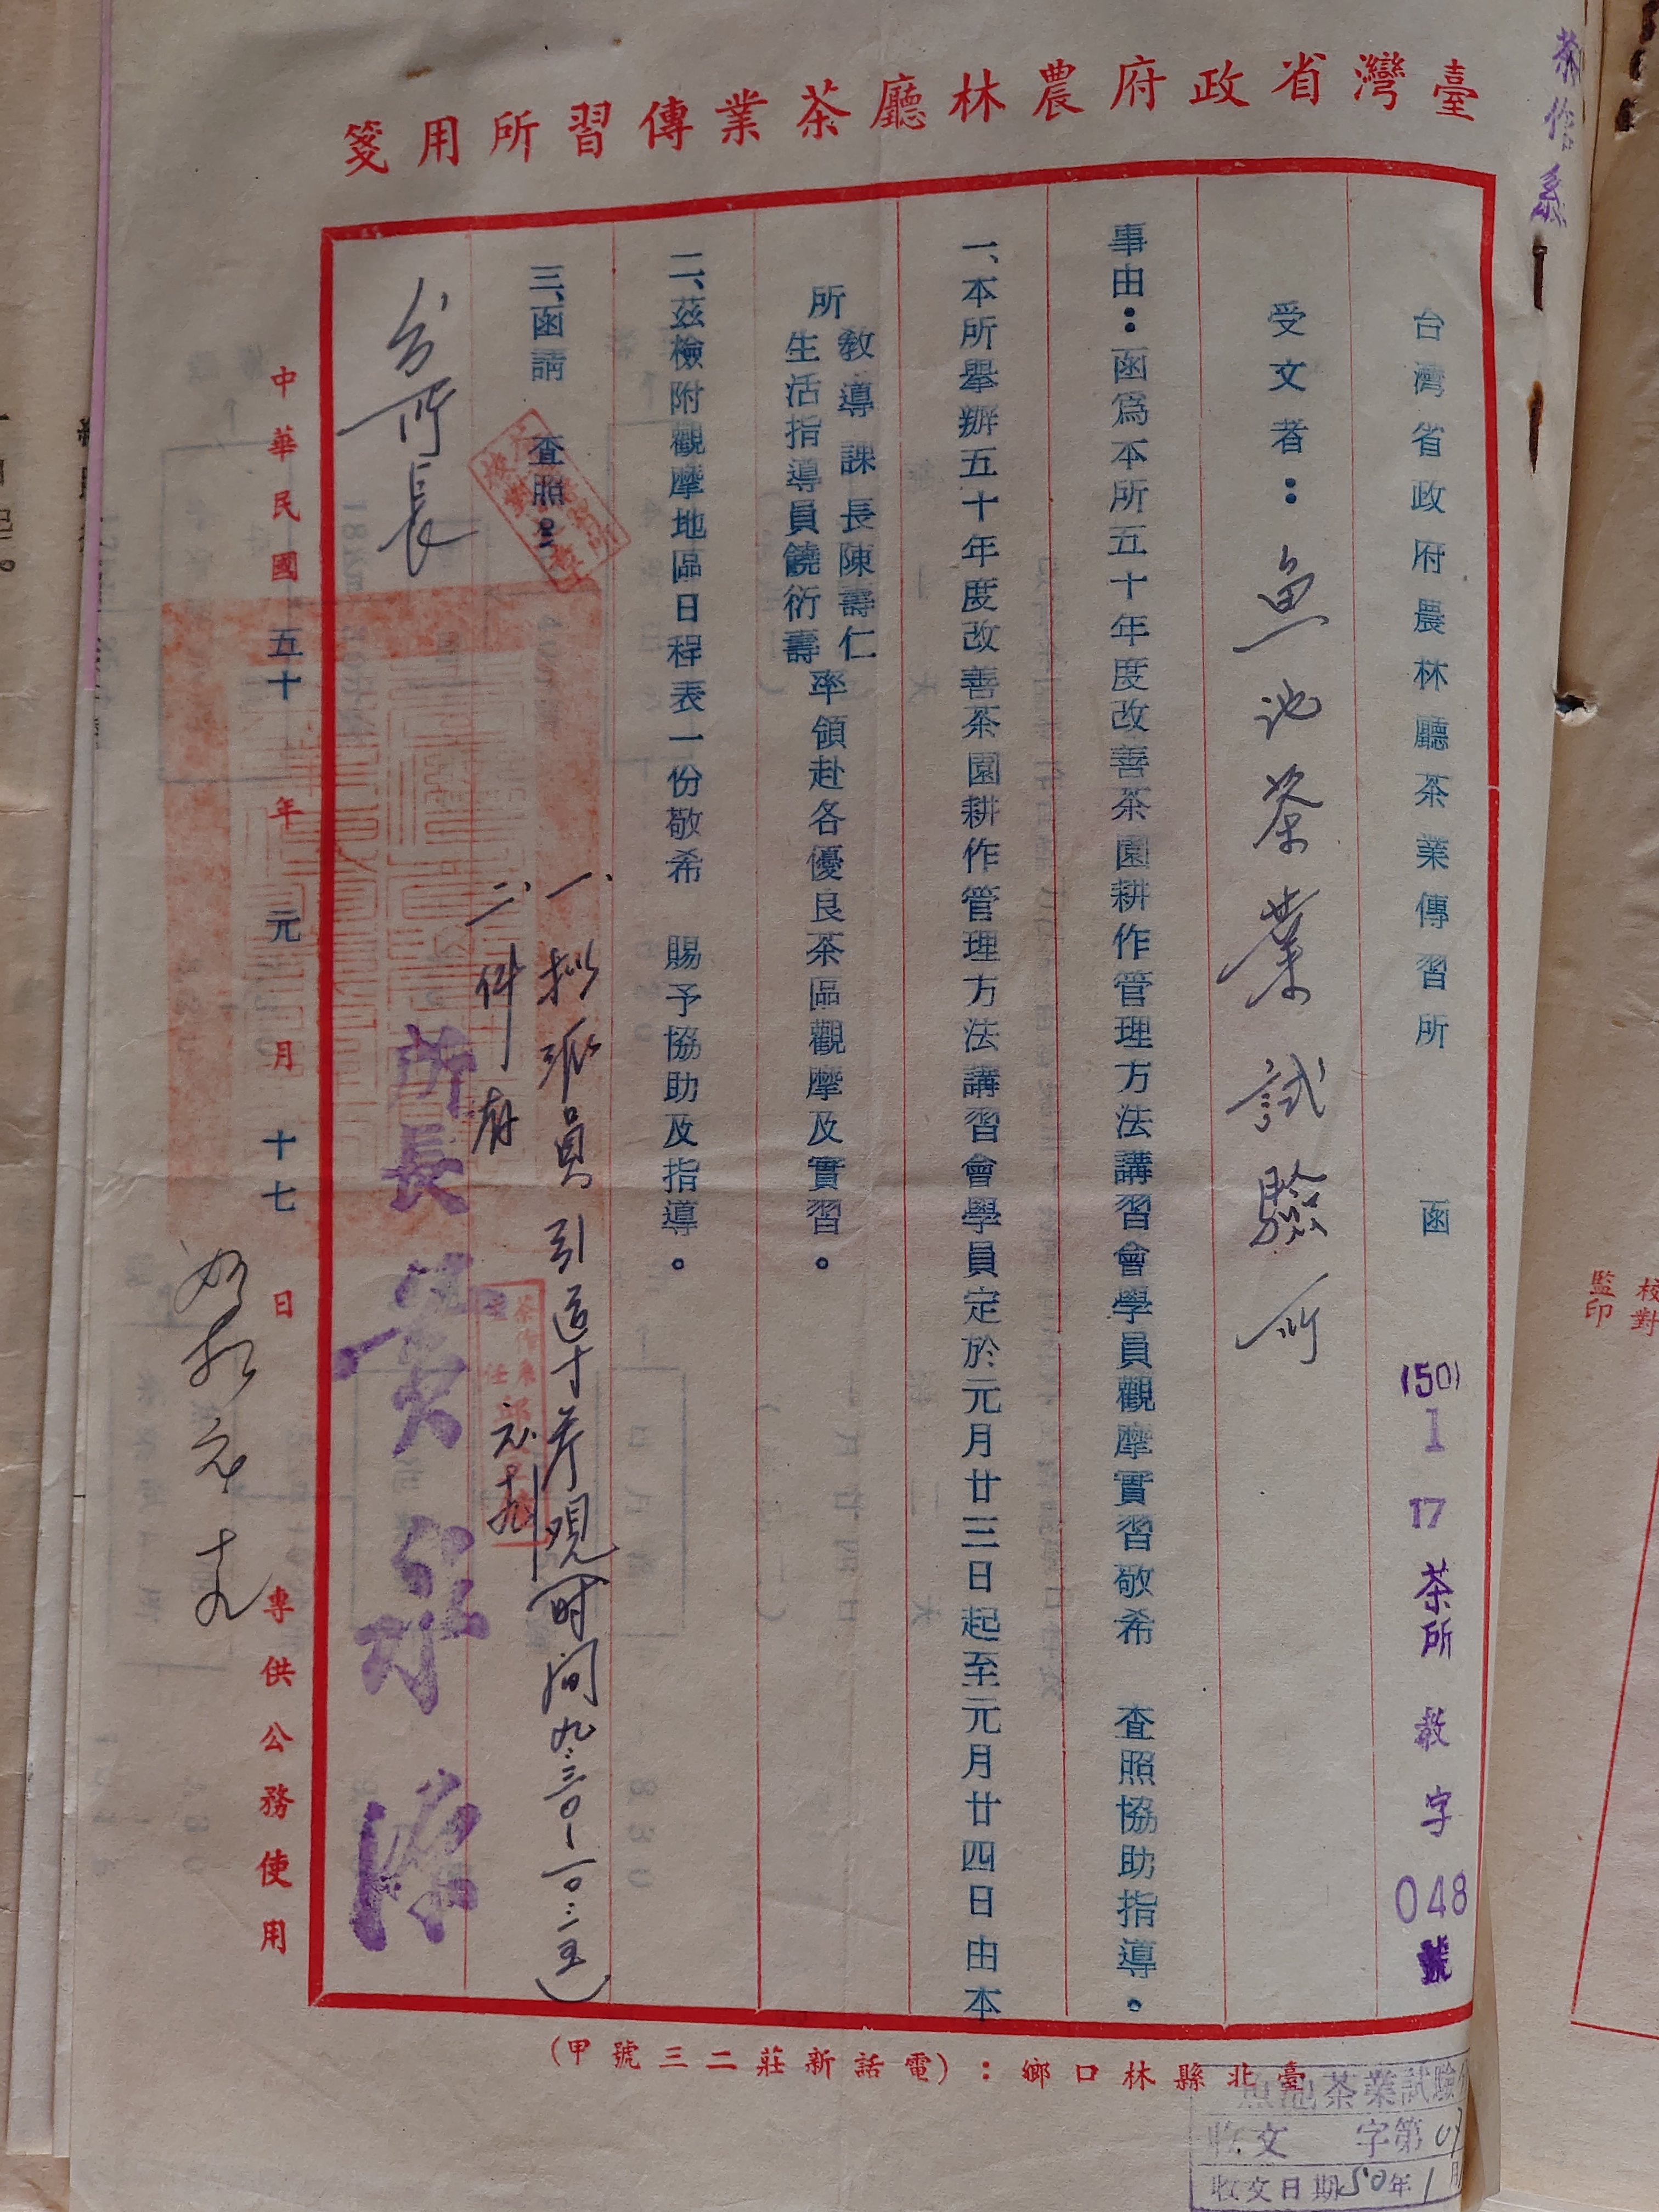 茶作系
臺灣省政府農林廳茶業傳習所用箋
台灣省政府農林廳茶業傳習所　函
(50) 1 17 茶所 教字 048 號
受文者：魚池茶業試驗所
事由：函爲本所五十年度改善茶園耕作管理方法講習會學員觀摩實習敬希　查照協助指導。
一、本所舉辦五十年度改善茶園耕作管理方法講習會學員定於元月廿三日起至元月廿四日由本
所
教導課長陳壽仁
生活指導員饒衍壽
率領赴各優良茶區觀摩及實習。
二、茲檢附觀摩地區日程表一份敬希　賜予協助及指導。
三、函請　查照
一、擬派員引導
參观时间九:三〇—一〇:三五)
二、件存
元.十九
所長
中華民國五十年元月十七日
專供公務使用
臺北縣林口鄉：(電話新莊二三號甲)
魚池茶業試驗
收文　字第
收文日期50年1月
監印
校對